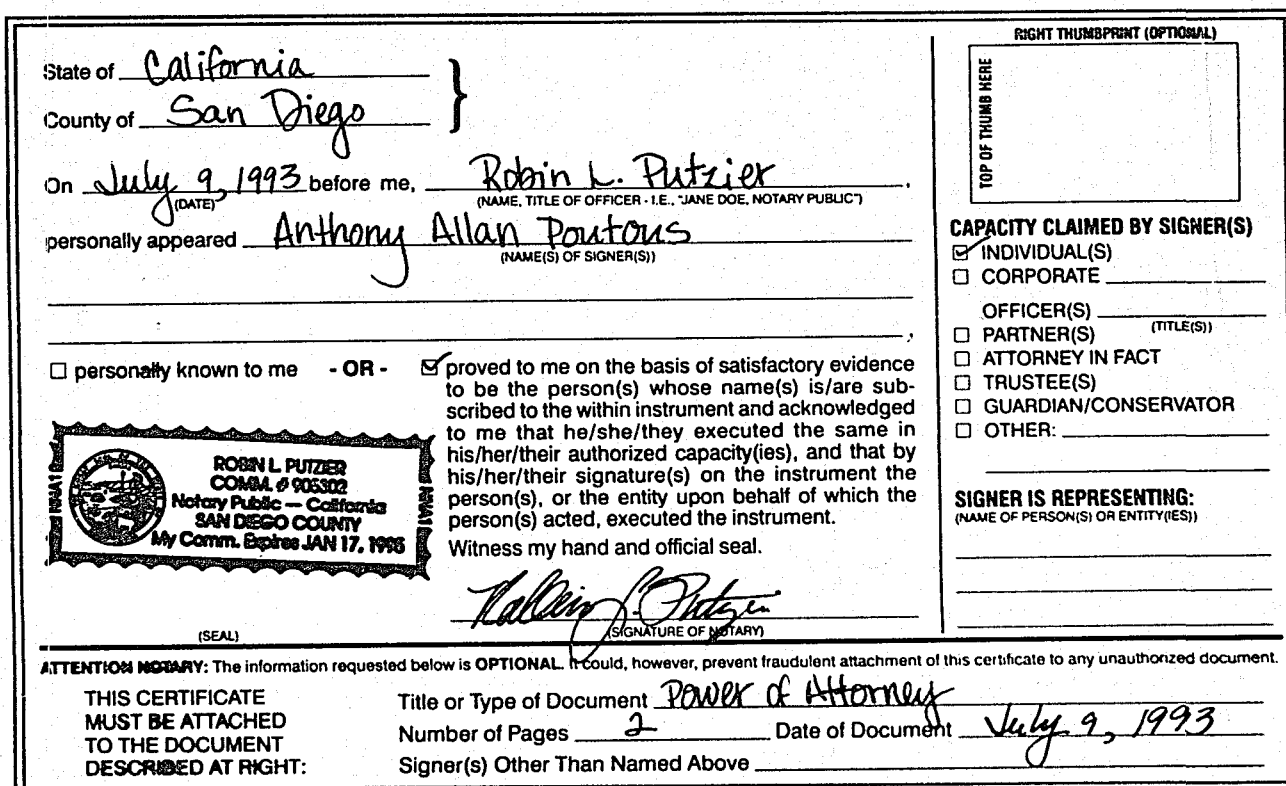 State of California
County of San Diego
On July 9, 1993 before me, Robin L. Putzier,
(DATE) (NAME, TITLE OF OFFICER - I.E., "JANE DOE, NOTARY PUBLIC")
personally appeared Anthony Allan Poutous
(NAME(S) OF SIGNER(S))
☐ personally known to me - OR - ☑ proved to me on the basis of satisfactory evidence
to be the person(s) whose name(s) is/are sub-
scribed to the within instrument and acknowledged
to me that he/she/they executed the same in
his/her/their authorized capacity(ies), and that by
his/her/their signature(s) on the instrument the
person(s), or the entity upon behalf of which the
person(s) acted, executed the instrument.
Witness my hand and official seal.
(SIGNATURE OF NOTARY)
ROBIN L. PUTZIER
COMM. # 905302
Notary Public — California
SAN DIEGO COUNTY
My Comm. Expires JAN 17,
(SEAL)
RIGHT THUMBPRINT (OPTIONAL)
TOP OF THUMB HERE
CAPACITY CLAIMED BY SIGNER(S)
☑ INDIVIDUAL(S)
☐ CORPORATE
OFFICER(S)
(TITLE(S))
☐ PARTNER(S)
☐ ATTORNEY IN FACT
☐ TRUSTEE(S)
☐ GUARDIAN/CONSERVATOR
☐ OTHER:
SIGNER IS REPRESENTING:
(NAME OF PERSON(S) OR ENTITY(IES))
ATTENTION NOTARY: The information requested below is OPTIONAL. It could, however, prevent fraudulent attachment of this certificate to any unauthorized document.
THIS CERTIFICATE
MUST BE ATTACHED
TO THE DOCUMENT
DESCRIBED AT RIGHT:
Title or Type of Document Power of Attorney
Number of Pages 2 Date of Document July 9, 1993
Signer(s) Other Than Named Above